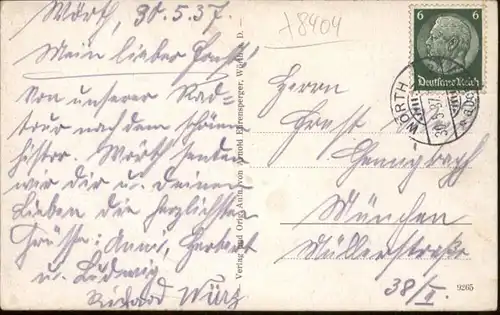 Wörth, 30.5.37.
Mein lieber Ernst!
Von unserer Rad=
tour nach dem schönen
histor. Wörth senden
wir Dir u. Deinen
Lieben die herzlichsten
Grüsse: Anni, Herbert
u. Ludwig
Richard Würz
Verlag und Orig.-Aufn. von Arnold Ehrensperger, Wörth a. D.
+8404
6 6
Deutsches Reich
WÖRTH
Herrn
Ernst
München
Müllerstraße
38/II.
9265